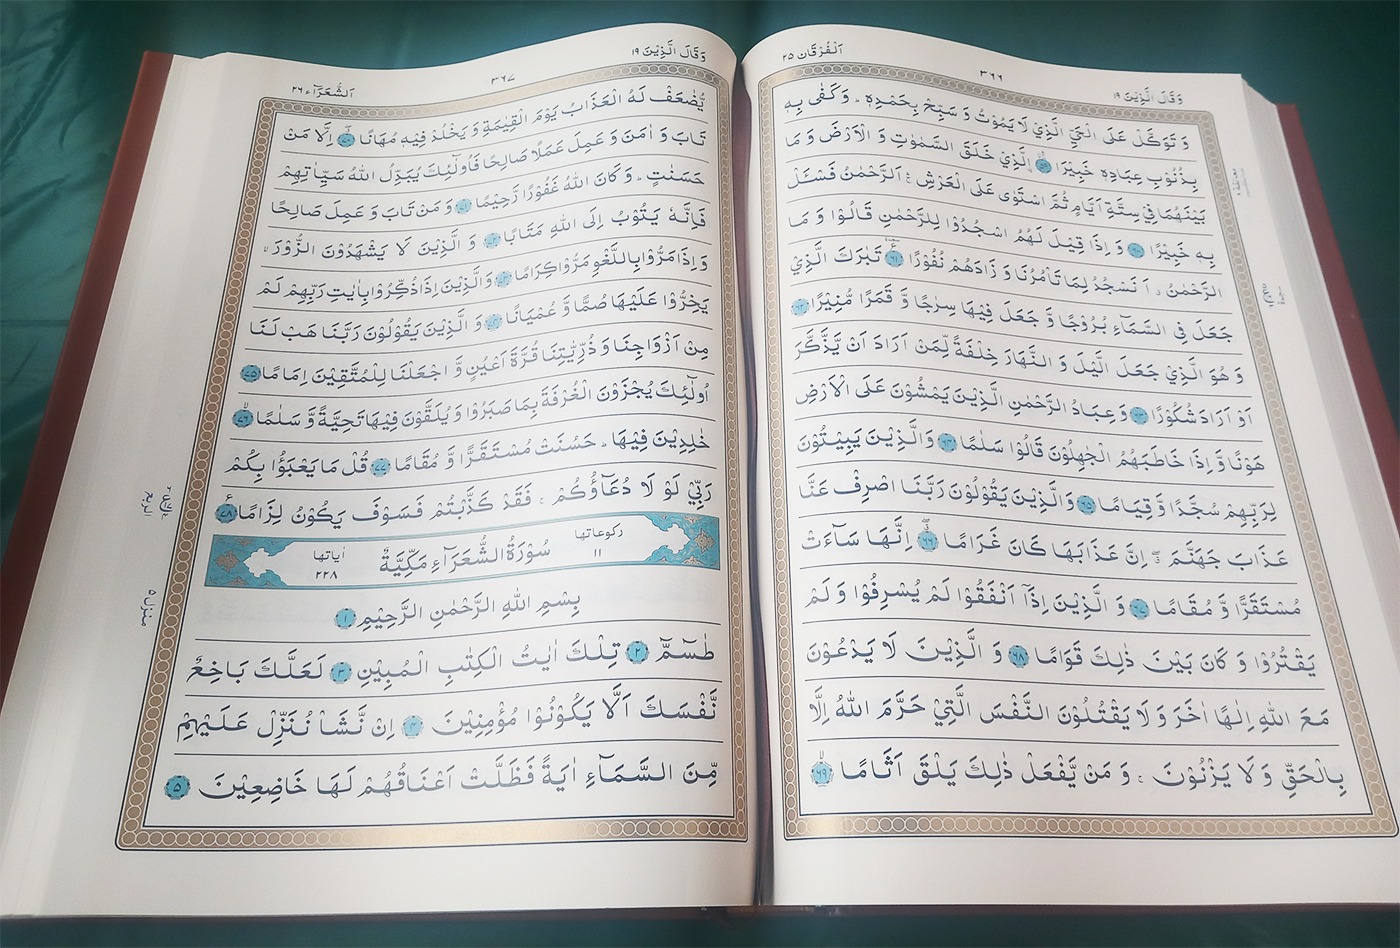 وَقَالَ الَّذِيْنَ ١٩ ٣٦٦ اَلْفُرْقَان ٢٥
وَ تَوَكَّلْ عَلَى الْحَيِّ الَّذِيْ لَا يَمُوْتُ وَ سَبِّحْ بِحَمْدِهٖ ؕ وَ كَفٰى بِهٖ
بِذُنُوْبِ عِبَادِهٖ خَبِيْرَا ٥٩ الَّذِيْ خَلَقَ السَّمٰوٰتِ وَ الْاَرْضَ وَ مَا
بَيْنَهُمَا فِيْ سِتَّةِ اَيَّامٍ ثُمَّ اسْتَوٰى عَلَى الْعَرْشِ ۚ اَلرَّحْمٰنُ فَسْـَٔلْ
بِهٖ خَبِيْرًا ٦٠ وَ اِذَا قِيْلَ لَهُمُ اسْجُدُوْا لِلرَّحْمٰنِ قَالُوْا وَ مَا
الرَّحْمٰنُ ۗ اَنَسْجُدُ لِمَا تَاْمُرُنَا وَ زَادَهُمْ نُفُوْرًا ٦١ تَبٰرَكَ الَّذِيْ
جَعَلَ فِي السَّمَآءِ بُرُوْجًا وَّ جَعَلَ فِيْهَا سِرٰجًا وَّ قَمَرًا مُّنِيْرًا ٦٢
وَ هُوَ الَّذِيْ جَعَلَ الَّيْلَ وَ النَّهَارَ خِلْفَةً لِّمَنْ اَرَادَ اَنْ يَّذَّكَّرَ
اَوْ اَرَادَ شُكُوْرًا ٦٣ وَ عِبَادُ الرَّحْمٰنِ الَّذِيْنَ يَمْشُوْنَ عَلَى الْاَرْضِ
هَوْنًا وَّ اِذَا خَاطَبَهُمُ الْجٰهِلُوْنَ قَالُوْا سَلٰمًا ٦٤ وَ الَّذِيْنَ يَبِيْتُوْنَ
لِرَبِّهِمْ سُجَّدًا وَّ قِيَامًا ٦٥ وَ الَّذِيْنَ يَقُوْلُوْنَ رَبَّنَا اصْرِفْ عَنَّا
عَذَابَ جَهَنَّمَ ۖ اِنَّ عَذَابَهَا كَانَ غَرَامًا ٦٦ اِنَّهَا سَآءَتْ
مُسْتَقَرًّا وَّ مُقَامًا ٦٧ وَ الَّذِيْنَ اِذَآ اَنْفَقُوْا لَمْ يُسْرِفُوْا وَ لَمْ
يَقْتُرُوْا وَ كَانَ بَيْنَ ذٰلِكَ قَوَامًا ٦٨ وَ الَّذِيْنَ لَا يَدْعُوْنَ
مَعَ اللّٰهِ اِلٰهًا اٰخَرَ وَ لَا يَقْتُلُوْنَ النَّفْسَ الَّتِيْ حَرَّمَ اللّٰهُ اِلَّا
بِالْحَقِّ وَ لَا يَزْنُوْنَ ۚ وَ مَنْ يَّفْعَلْ ذٰلِكَ يَلْقَ اَثَامًا ٦٩
وَقَالَ الَّذِيْنَ ١٩ ٣٦٧ اَلشُّعَرَآء ٢٦
يُّضٰعَفْ لَهُ الْعَذَابُ يَوْمَ الْقِيٰمَةِ وَ يَخْلُدْ فِيْهٖ مُهَانًا ٧٠ اِلَّا مَنْ
تَابَ وَ اٰمَنَ وَ عَمِلَ عَمَلًا صَالِحًا فَاُولٰٓئِكَ يُبَدِّلُ اللّٰهُ سَيِّاٰتِهِمْ
حَسَنٰتٍ ؕ وَ كَانَ اللّٰهُ غَفُوْرًا رَّحِيْمًا ٧١ وَ مَنْ تَابَ وَ عَمِلَ صَالِحًا
فَاِنَّهٗ يَتُوْبُ اِلَى اللّٰهِ مَتَابًا ٧٢ وَ الَّذِيْنَ لَا يَشْهَدُوْنَ الزُّوْرَ ۙ
وَ اِذَا مَرُّوْا بِاللَّغْوِ مَرُّوْا كِرَامًا ٧٣ وَ الَّذِيْنَ اِذَا ذُكِّرُوْا بِاٰيٰتِ رَبِّهِمْ لَمْ
يَخِرُّوْا عَلَيْهَا صُمًّا وَّ عُمْيَانًا ٧٤ وَ الَّذِيْنَ يَقُوْلُوْنَ رَبَّنَا هَبْ لَنَا
مِنْ اَزْوَاجِنَا وَ ذُرِّيّٰتِنَا قُرَّةَ اَعْيُنٍ وَّ اجْعَلْنَا لِلْمُتَّقِيْنَ اِمَامًا ٧٥
اُولٰٓئِكَ يُجْزَوْنَ الْغُرْفَةَ بِمَا صَبَرُوْا وَ يُلَقَّوْنَ فِيْهَا تَحِيَّةً وَّ سَلٰمًا ٧٦
خٰلِدِيْنَ فِيْهَا ؕ حَسُنَتْ مُسْتَقَرًّا وَّ مُقَامًا ٧٧ قُلْ مَا يَعْبَؤُا بِكُمْ
رَبِّيْ لَوْ لَا دُعَآؤُكُمْ ۚ فَقَدْ كَذَّبْتُمْ فَسَوْفَ يَكُوْنُ لِزَامًا ٧٨
ركوعاتها ١١ سُوْرَةُ الشُّعَرَآءِ مَكِّيَّةٌ اٰياتها ٢٢٨
بِسْمِ اللّٰهِ الرَّحْمٰنِ الرَّحِيْمِ ١
طٰسٓمّٓ ٢ تِلْكَ اٰيٰتُ الْكِتٰبِ الْمُبِيْنِ ٣ لَعَلَّكَ بَاخِعٌ
نَّفْسَكَ اَلَّا يَكُوْنُوْا مُؤْمِنِيْنَ ٤ اِنْ نَّشَاْ نُنَزِّلْ عَلَيْهِمْ
مِّنَ السَّمَآءِ اٰيَةً فَظَلَّتْ اَعْنَاقُهُمْ لَهَا خَاضِعِيْنَ ٥
الربع
منزل ٥